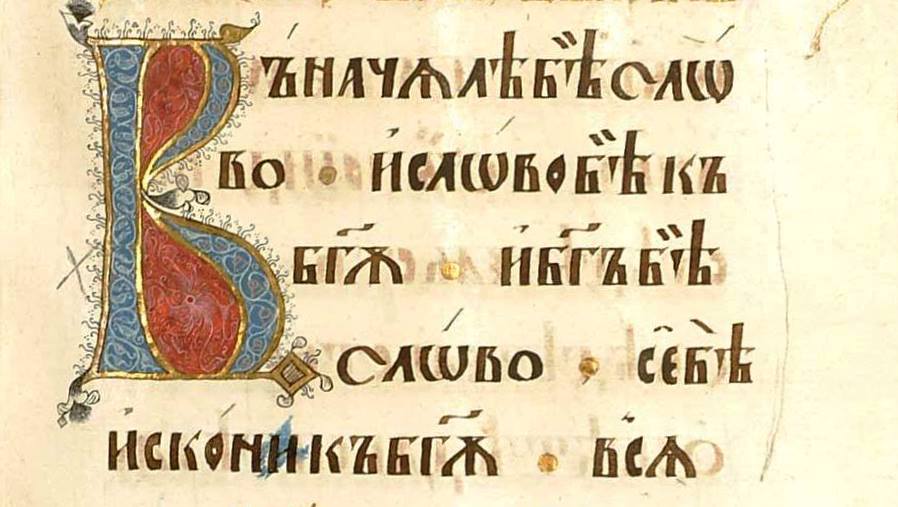 Въ начѧлѣ бѣ̏ слѡ́
во · и҆ слѡ́во бѣ̏ къ
бг҃ѫ · и҆ бг҃ъ бѣ̏
слѡ́во · се̑ бѣ̀
и҆ско́ни къ бг҃ѫ · всѧ̀